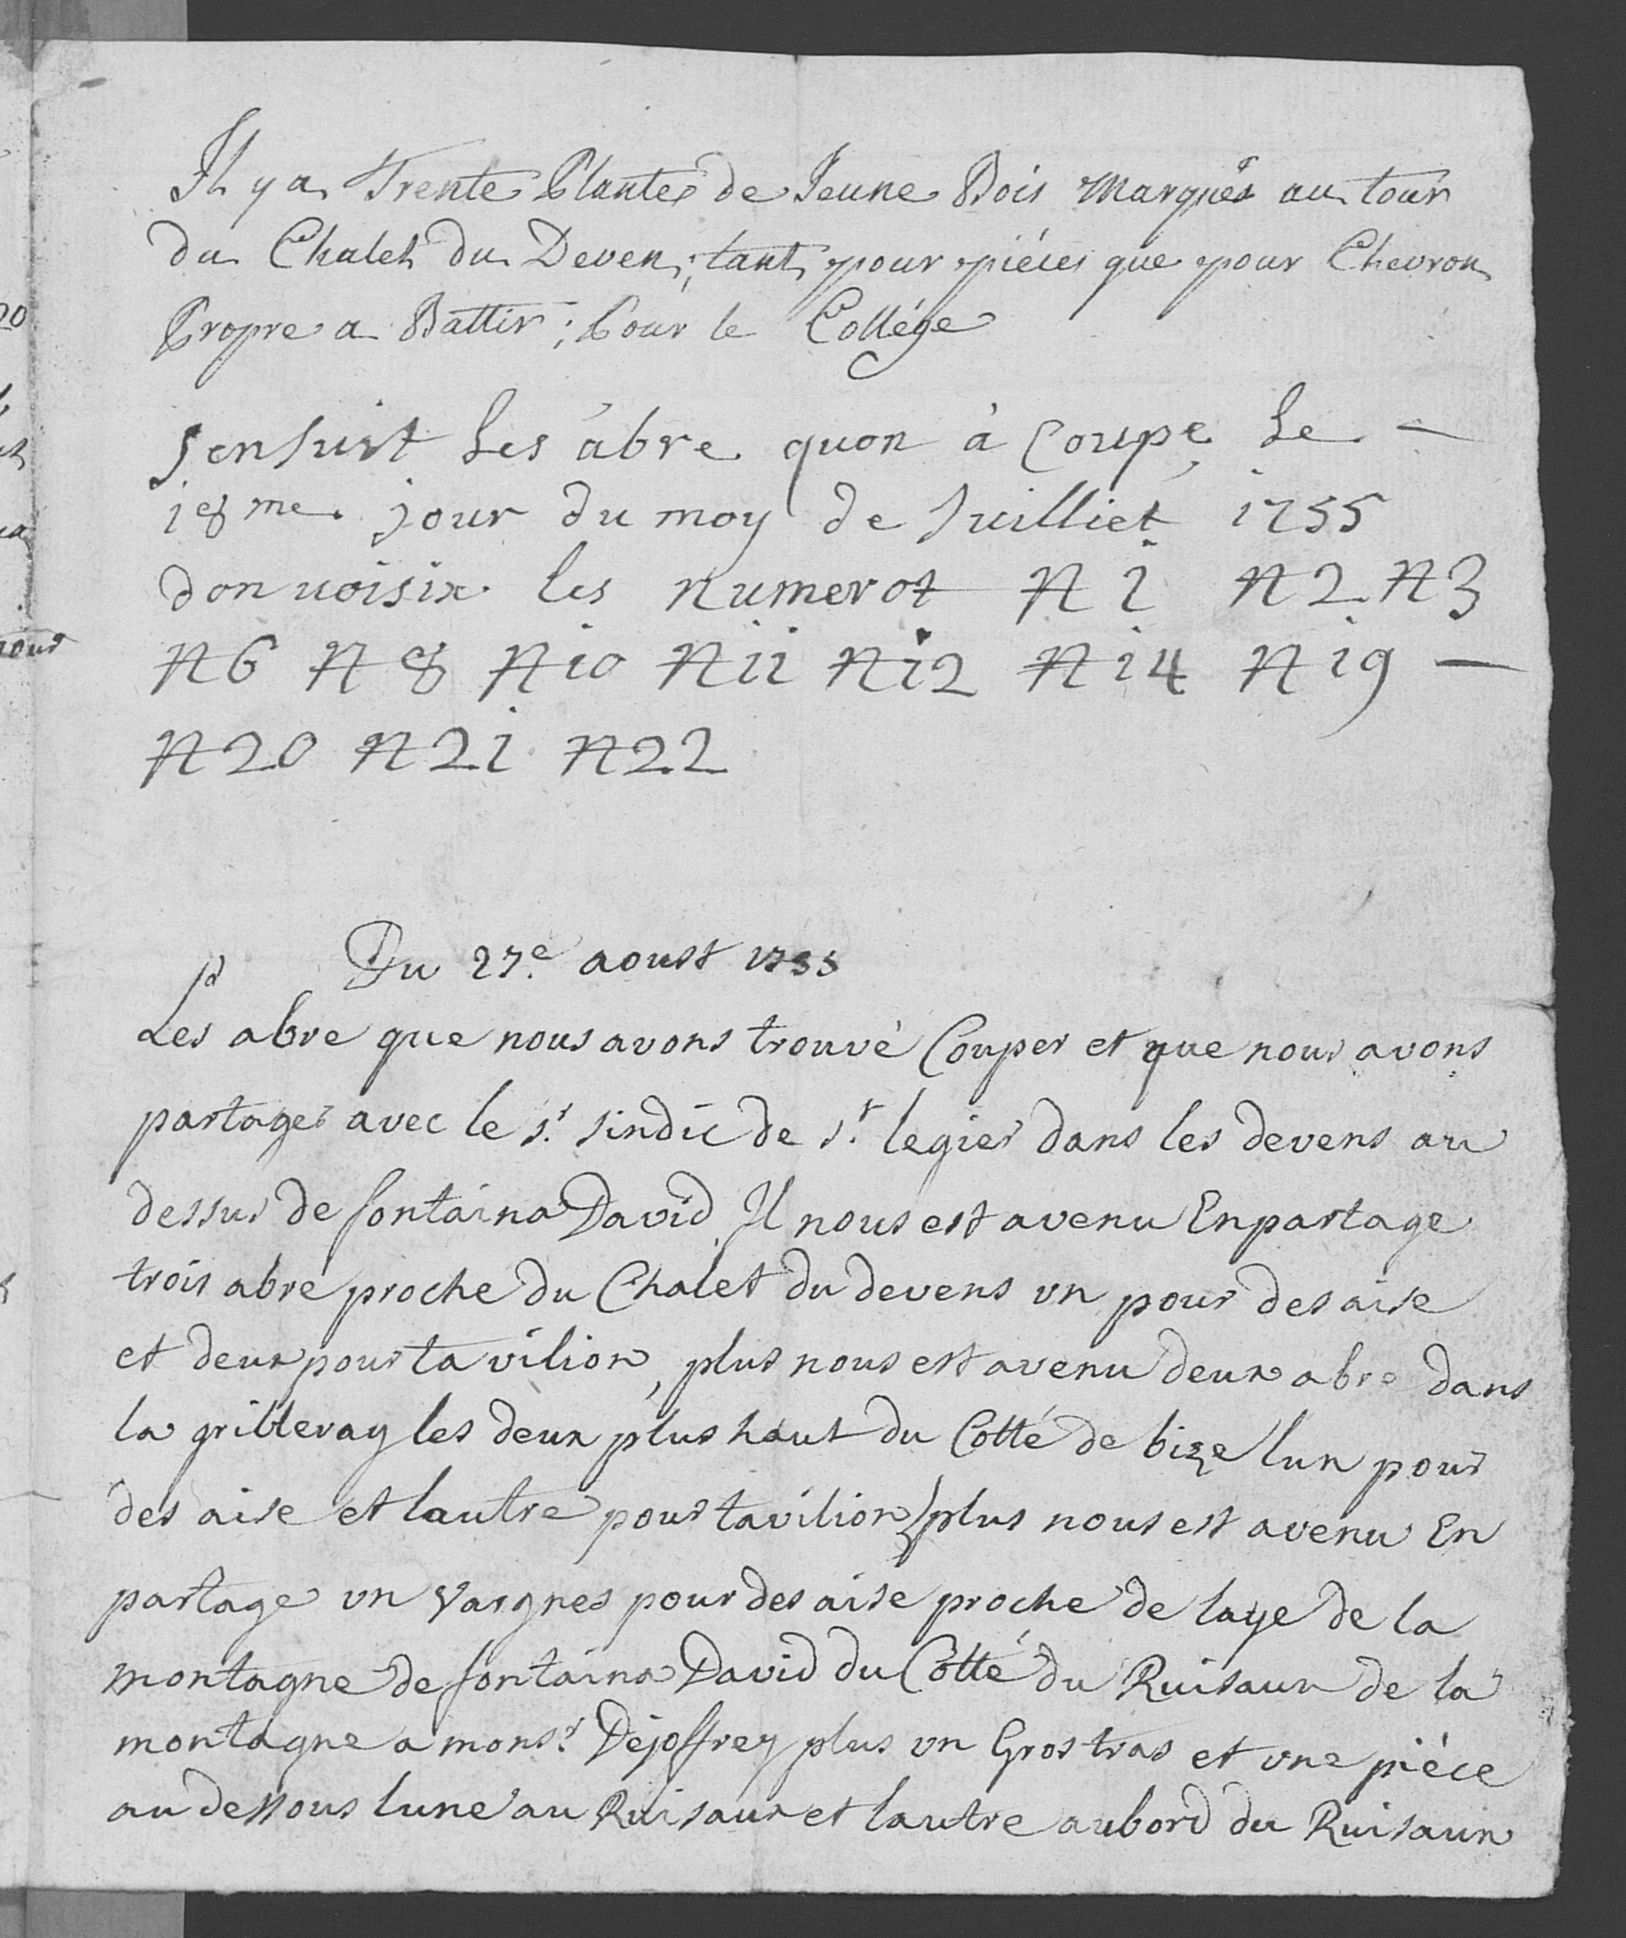 Il y a Trente Plantes de Jeune Bois Marqués au tour
du Chalet du Deven; tant pour piéces que pour Chevron
Propre a Battir; Pour le Collége
sensuit Les abre quon à Coupe Le —
18me. jour du moy de Juilliet 1755
don voisix les numerot N 1 N 2 N 3
N 6 N 8 N 10 N 11 N 12 N 14 N 19 —
N 20 N 21 N 22
Du 27.e aoust 1755
Les abre que nous avons trouvé Couper et que nous avons
partager avec le s.r sindic de s.t legier dans les devens au
dessus de fontaina David Il nous est avenu En partage
trois abre proche du Chalet du devens un pour des aise
et deux pour tavilion, plus nous est avenu deux abre dans
la les deux plus haut du Cotté de bize lun pour
des aise et lautre pour tavilion plus nous est avenu En
partage un Vargnes pour des aise proche de laye de la
montagne de fontaina David du Cotté du Ruisaux de la
montagne a mons.r Déjoffrey plus un Gros tras et une piéce
au dessous lune au Ruisaux et lautre au bord du Ruisaux